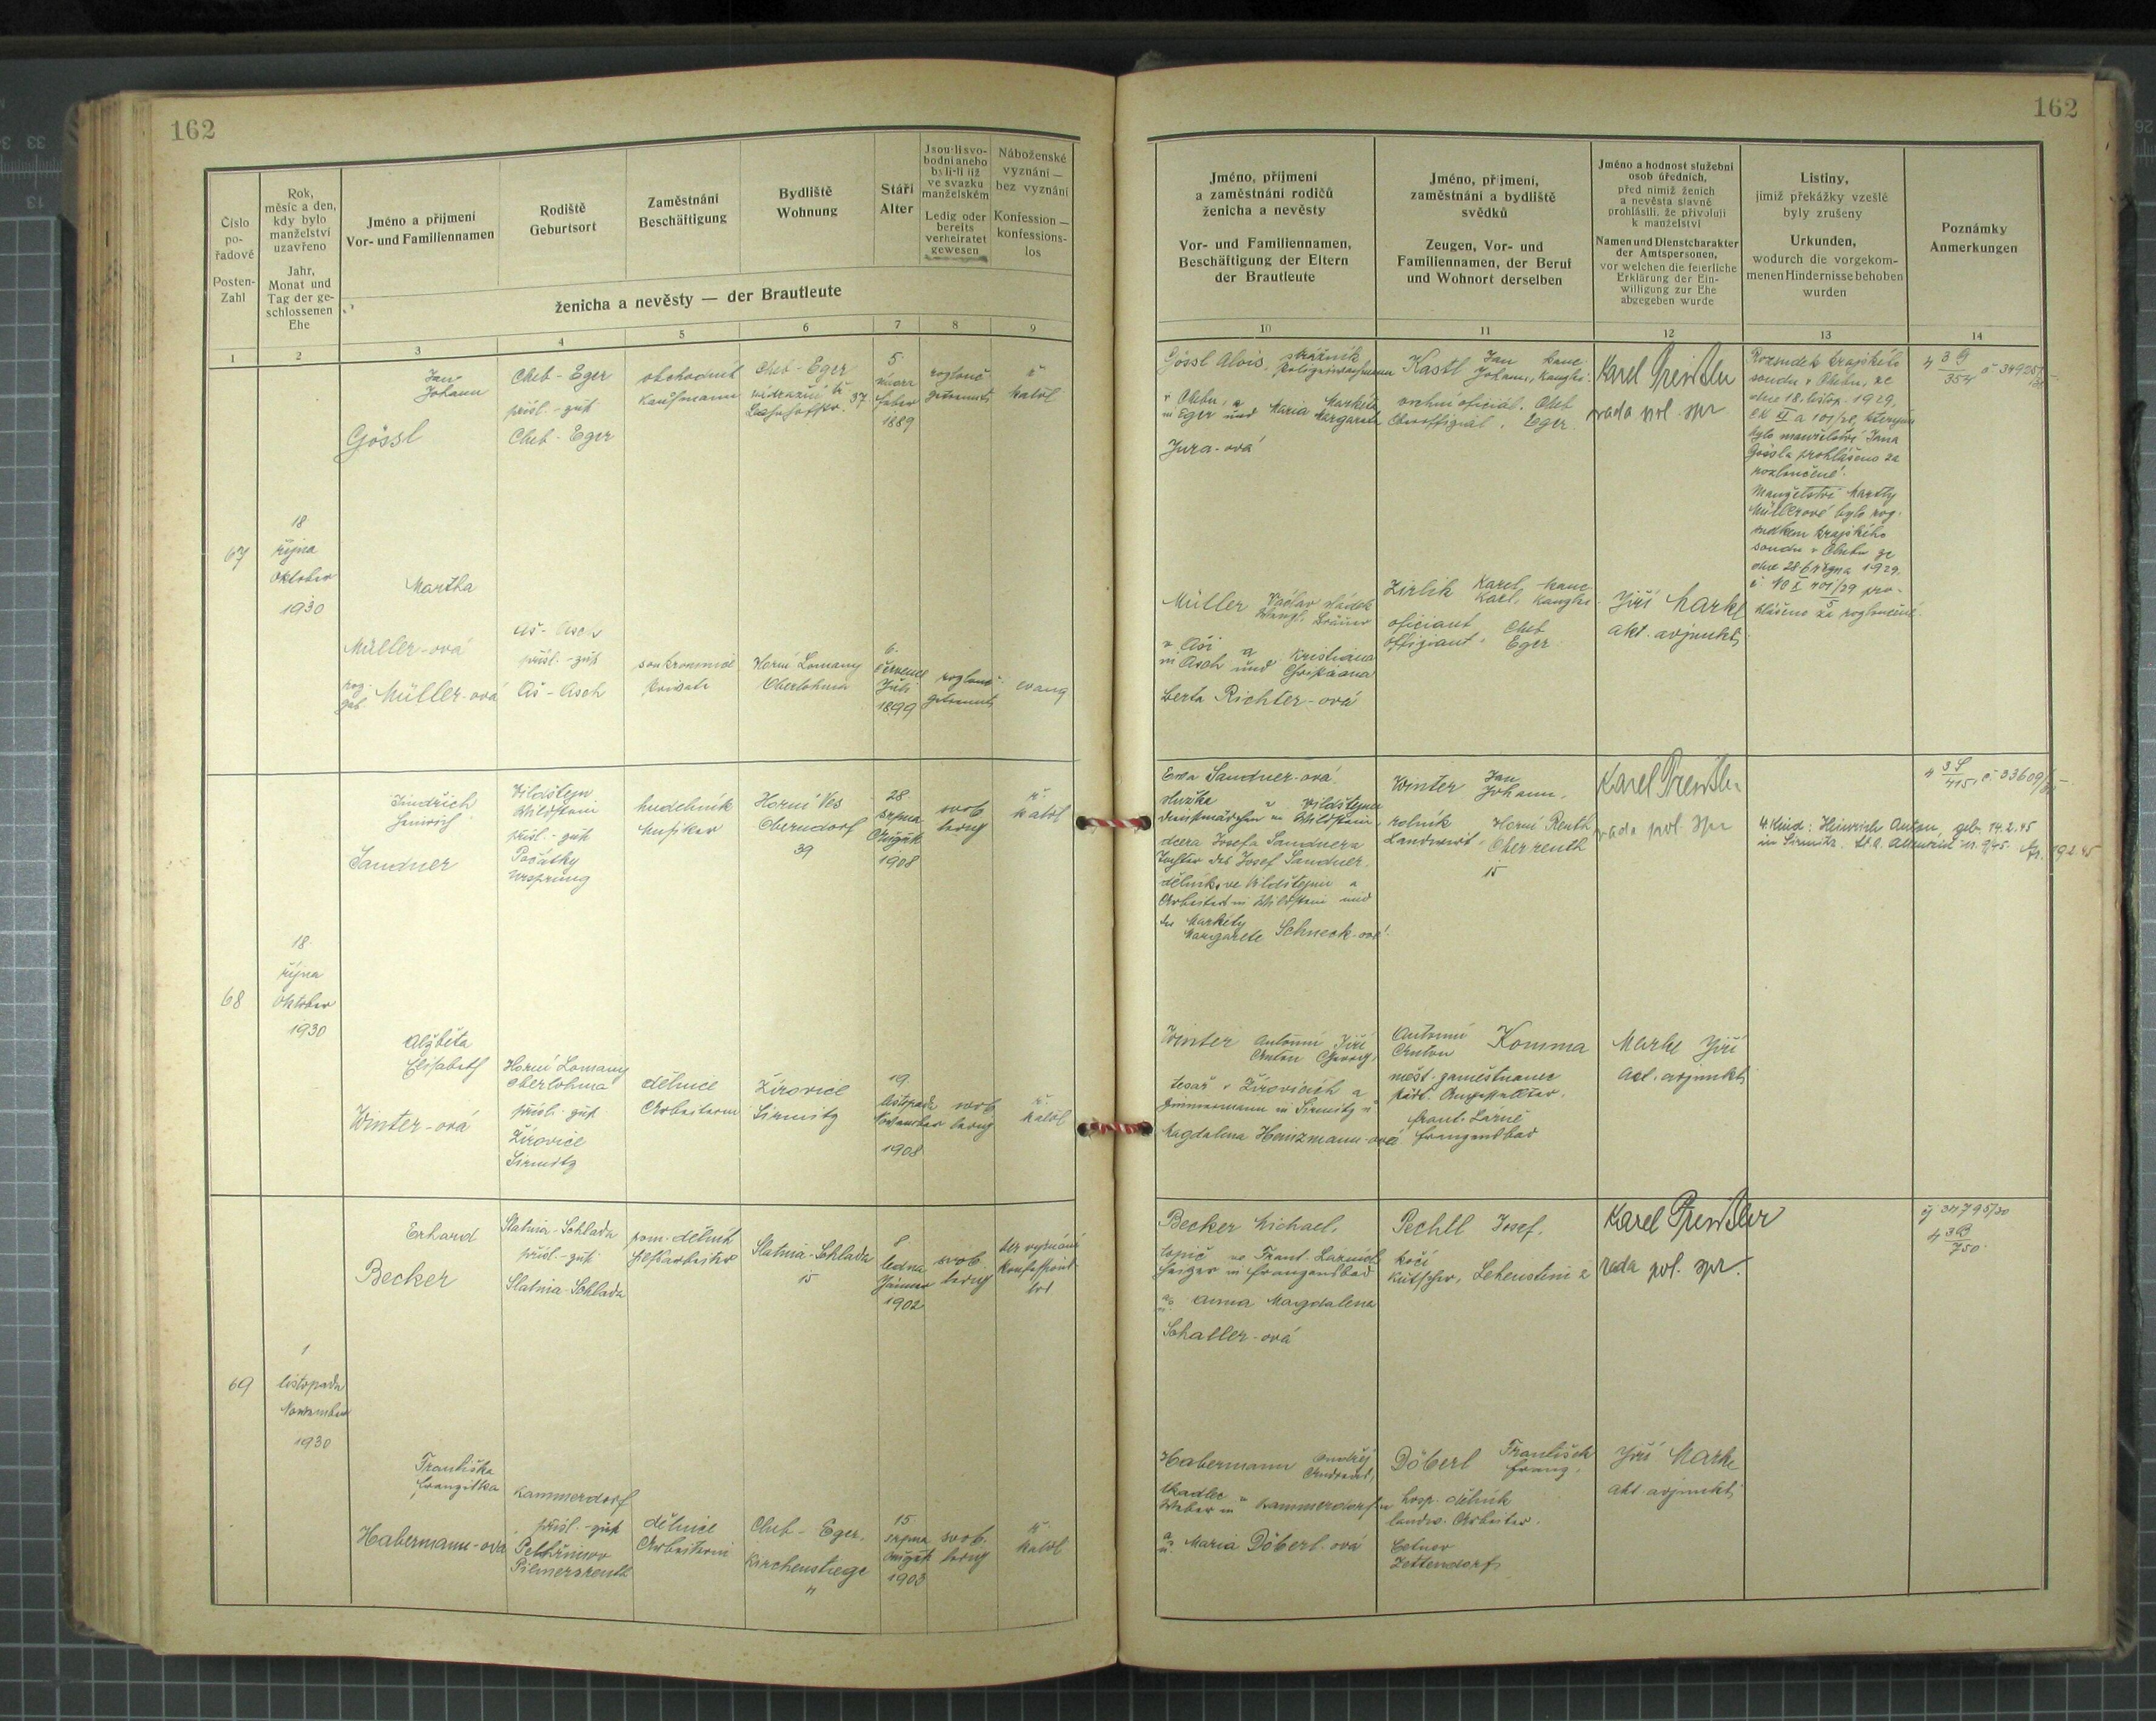 162
162
Číslo
po-
řadové
Posten-
Zahl
Rok,
měsíc a den,
kdy bylo
manželství
uzavřeno
Jahr,
Monat und
Tag der ge-
schlossenen
Ehe
Jméno a příjmení
Vor- und Familiennamen
Rodiště
Geburtsort
Zaměstnání
Beschäftigung
Bydliště
Wohnung
Stáří
Alter
Jsou-li svo-
bodni aneho
byli-li již
ve svazku
manželském
Ledig oder
bereits
verheiratet
gewesen
Náboženské
vyznání —
bez vyznání
Konfession —
konfessions-
los
ženicha a nevěsty — der Brautleute
1
2
3
4
5
6
7
8
9
Jméno, příjmení
a zaměstnání rodičů
ženicha a nevěsty
Vor- und Familiennamen,
Beschäftigung der Eltern
der Brautleute
Jméno, příjmení,
zaměstnání a bydliště
svědků
Zeugen, Vor- und
Familiennamen, der Beruf
und Wohnort derselben
Jméno a hodnost služební
osob úředních,
před nimiž ženich
a nevěsta slavně
prohlásili, že přivolují
k manželství
Namen und Dienstcharakter
der Amtspersonen,
vor welchen die feierliche
Erklärung der Ein-
willigung zur Ehe
abgegeben wurde
Listiny,
jimiž překážky vzešlé
byly zrušeny
Urkunden,
wodurch die vorgekom-
menen Hindernisse behoben
wurden
Poznámky
Anmerkungen
10
11
12
13
14
67
18
října
Oktober
1930
Jan
Johann
Gössl
Cheb - Eger
přísl. - zust
Cheb - Eger
obchodník
Kaufmann
Cheb - Eger
37
5
února
Feber
1889
rozlouč.
getrennt
ř.
katol
Gössl Alois, strážník
Polizeiwachmann
v Chebu, a Markéta
in Eger und Maria Margareta
Jura-ová
Kastl Jan kanc.
Johann, Kanzlei.
vrchní oficiál, Cheb
Oberoffizial, Eger.
Karel
rada pol. spr
Rozsudek krajského
soudu v Chebu, ze
dne 18. listop. 1929,
bylo manželství Jana
Gössla prohlášeno za
rozloučené.
Manželství Marthy
Müllerové bylo roz-
sudkem krajského
soudu v Chebu ze
dne 28. října 1929.
hlášeno za rozloučené.
Martha
Müller-ová
roz.
geb Müller-ová
Aš - Asch
přísl. - zust
Aš - Asch
soukromnice
Private
Horní Lomany
Oberlohma
6.
července
Juli
1899
rozlouč.
getrennt
evang
Müller Václav sládek
Wenzl, Bräuer
v Aši a Kristiana
in Asch und Christiana
Berta Richter-ová
Zirlik Karel kanc.
Karl, Kanzlei.
oficiant, Cheb
Offiziant, Eger.
Jiří Markl
akt. adjunkt
68
18.
října
Oktober
1930
Jindřich
Heinrich
Sandner
Vildštejn
Wildstein
přísl. - zust
Počátky
Ursprung
hudebník
Musiker
Horní Ves
Oberndorf
39
28
srpna
August
1908
svob.
ledig
ř.
katol
Eva Sandner-ová
služka v Vildštejnu
Dienstmädchen in Wildstein
dcera Josefa Sandnera
Tochter des Josef Sandner
dělník ve Vildštejnu a
Arbeiter in Wildstein und
der Markéty
Margarete Schneck-ové
Winter Jan
Johann,
rolník Horní Reuth
Landwirt, Oberreuth
15
Karel
rada pol. spr
4. Kind: Heinrich Anton, geb. 14.2.45
19.2.45
Alžběta
Elisabeth
Winter-ová
Horní Lomany
Oberlohma
přísl. - zust
Žírovice
Sirmitz
dělnice
Arbeiterin
Žírovice
Sirmitz
19.
listopadu
November
1908
svob
ledig
ř.
katol
Winter Antonín Jiří
Anton Georg,
tesař v Žírovicích a
Zimmermann in Sirmitz u
Magdalena Heinzmann-ová
Antonín
Anton Komma
měst. zaměstnanec
städt. Angestellter,
Frant. Lázně
Franzensbad
Marke Jiří
act. adjunkt
69
1
listopadu
November
1930
Erhard
Becker
Slatina - Schlada
přísl. - zust
Slatina - Schlada
pom. dělník
Hilfsarbeiter
Slatina - Schlada
15
ledna
Jänner
1902
svob.
ledig
bez vyznání
Konfessions-
los
Becker Michael,
topič ve Frant. Lázních
Heizer in Franzensbad
a
u. Anna Magdalena
Schaller-ová
Pechtl Josef,
kočí
Kutscher, Lehenstein 2
Karel
rada pol. spr.
Františka
Franziska
Habermann-ová
Kammerdorf
přísl. - zust
Pelhřimov
Pilmersreuth
dělnice
Arbeiterin
Cheb - Eger.
Kirchenstiege
15
srpna
August
1903
svob.
ledig
ř.
katol
Habermann Ondřej
Andreas,
tkadlec v
Weber in Kammerdorf
a
u. Maria Döberl-ová
Döberl František
Franz,
hosp. dělník
landw. Arbeiter,
Cetnov
Zettendorf
Jiří Marke
akt. adjunkt